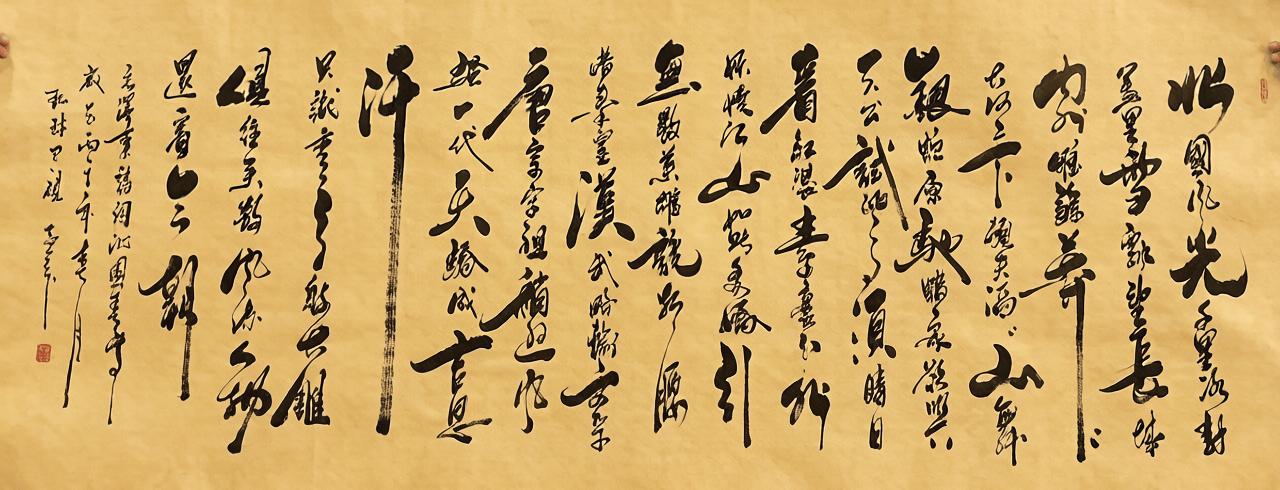 北國風光千里冰封
萬里雪飄望長城
內外惟餘莽〻
大河上下頓失滔〻山舞
銀蛇原馳蠟象欲與
天公試比高須晴日
看紅裝素裹分外
妖嬈江山如此多嬌引
無數英雄競折腰
惜秦皇漢武略輸文采
唐宗宋祖稍遜風
騷一代天驕成吉思
汗
只識彎弓射大雕
俱往矣數風流人物
還看今朝
毛澤東詩詞沁園春雪
歲在丙年春月